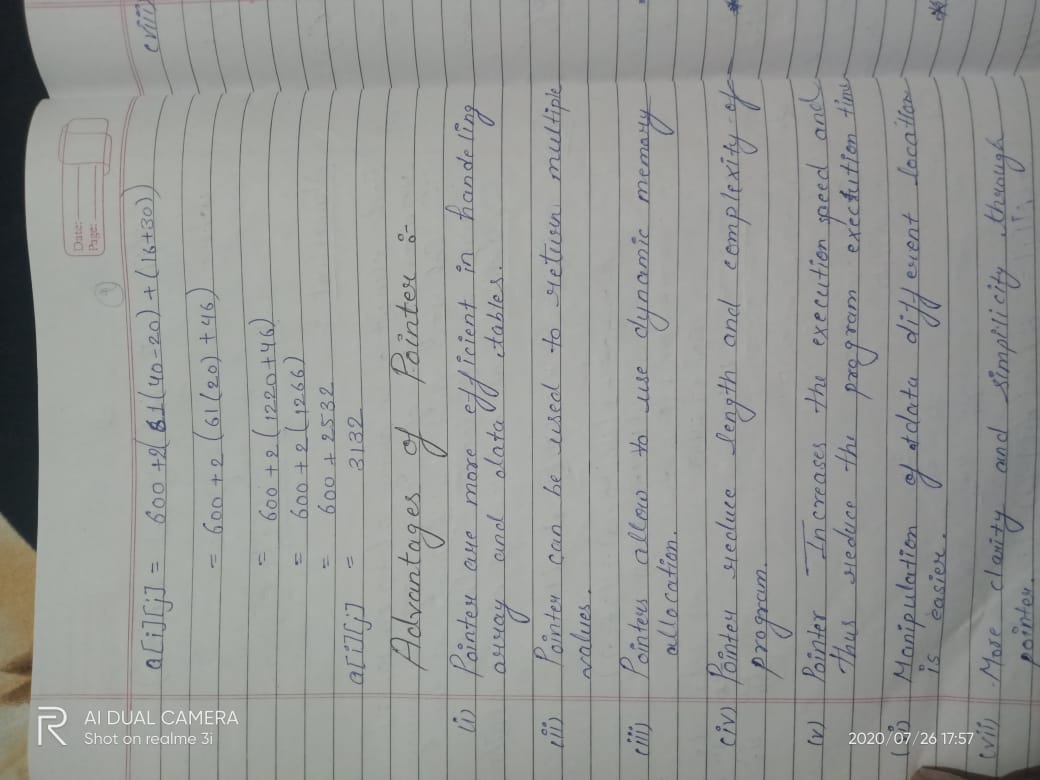 Date:
Page:
a[i][j] = 600 + 2(61(40-20) + (16+30))
= 600 + 2 (61(20) + 46)
= 600 + 2 (1220 + 46)
= 600 + 2 (1266)
= 600 + 2532
a[i][j] = 3132
Advantages of Pointer :-
(i) Pointer are more efficient in handeling
array and data tables.
(ii) Pointer can be used to return multiple
values.
(iii) Pointers allow to use dynamic memory
allocation.
(iv) Pointer reduce length and complexity of
program.
(v) Pointer Increases the execution speed and
thus reduce the program exectution time
(vi) Manipulation of data different location
is easier.
(vii) More clarity and simplicity through
pointer.
(viii)
R AI DUAL CAMERA
Shot on realme 3i
2020/07/26 17:57